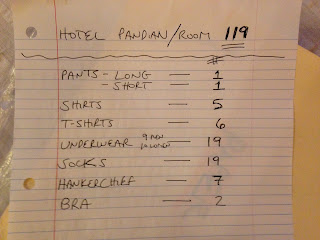 HOTEL PANDIAN/ROOM 119
#
PANTS - LONG — 1
- SHORT — 1
SHIRTS — 5
T-SHIRTS — 6
UNDERWEAR 9 MEN 10 WOMEN — 19
SOCKS — 19
HANKERCHIEF — 7
BRA — 2